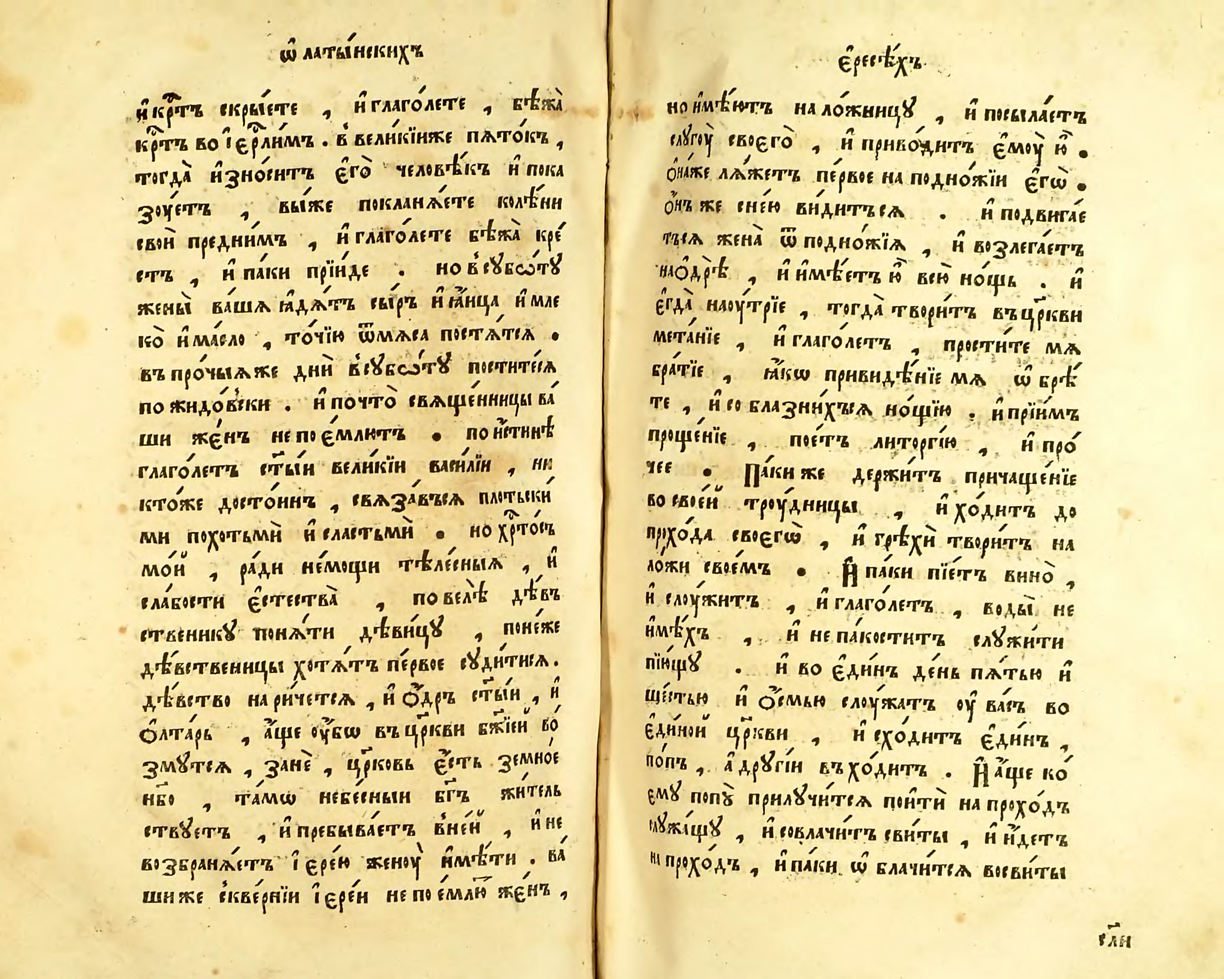 ѿ латы́нскихъ
и҆ кр҃тъ скры́ете , и҆ глаго́лете , бѣжа̀
кр҃тъ во і҆ер҃лимъ . в҆ вели́кїиже пѧто́къ ,
тогда̀ и҆зно́ситъ є҆го̀ человѣ́къ и҆ пока
зоу́етъ , вы́же покланѧ́ете колѣ́ни
своѝ предни́мъ , и҆ глаго́лете бѣжа̀ кре́
стъ , и҆ па́ки прїи́де . но в҆ сꙋббѡ́тꙋ
жены̀ ва́шѧ ꙗ҆дѧ́тъ сы́ръ и҆ ꙗ҆́ица и҆ мле
ко̀ и҆ ма́сло , то́чїю ѿмѧ́са постѧ́тсѧ .
въ про́чыѧже днѝ в҆ сꙋббѡ́тꙋ пости́тесѧ
по жидо́вски . и҆ почто̀ свѧще́нницы ва́
ши же́нъ не по є҆́млютъ . по и҆́стинѣ
глаго́летъ ст҃ы́и вели́кїи васи́лїи , ни
кто́же досто́инъ , свѧза́въсѧ пло́тьски
ми похотьмѝ и҆ сластьмѝ . но хр҃то́съ
мо́й , ра́ди не́мощи тѣле́сныѧ , и҆
сла́бости є҆стества̀ , по велѣ̀ дѣ́въ
ственикꙋ понѧ́ти дѣви́цꙋ , поне́же
дѣ́вственицы хотѧ́тъ пе́рвое сꙋди́тисѧ .
дѣ́вство нари́четсѧ , и҆ ѻ҆́дръ ст҃ы́и , и҆
ѻ҆лта́рь , а҆́ще оу҆́бѡ въ цр҃кви бж҃їей во́
змꙋтсѧ , занѐ , цр҃ковь є҆́сть земно́е
нб҃о , та́мѡ небе́сныи бг҃ъ жи́тель
ствꙋетъ , и҆ пребыва́етъ в҆не́й , и҆ не
возбранѧ́етъ і҆ере́ю женоу̀ и҆мѣ́ти . ва́
шиже скве́рнїи і҆ере́и не по е҆́млю же́нъ ,
є҆ресѣ́хъ
но и҆мѣ́ютъ нало́жницꙋ , и҆ посыла́етъ
слꙋгоу̀ своего̀ , и҆ приво́дитъ є҆моу̀ ю҆̀ .
ѻ҆на́же лѧ́жетъ пе́рвое на подно́жїи є҆гѡ̀ .
ѻ҆́нъ же снѐю види́тъсѧ . и҆ подвига́е
тъсѧ жена̀ ѿ подно́жїѧ , и҆ возлега́етъ
на ѻ҆дрѣ̀ , и҆ и҆мѣ́етъ ю҆̀ всю̀ но́щь . и҆
є҆гда̀ наоу́трїе , тогда̀ твори́тъ въ цр҃кви
мета́нїе , и҆ глаго́летъ , прости́те мѧ
бра́тїе , ꙗ҆́кѡ привидѣ́нїе мѧ ѡ҆ брѣ́
те , и҆ со блазни́хъсѧ но́щїю . и҆ прїи́мъ
проще́нїе , пое́тъ литоргі́ю , и҆ про́
чее . Па́ки же держи́тъ причаще́нїе
во свое́й троу́дницы , и҆ хо́дитъ до
прохо́да своегѡ̀ , и҆ грѣхѝ твори́тъ на
ло́жи свое́мъ . И҆ па́ки пїе́тъ вино̀ ,
и҆ слоу́житъ , и҆ глаго́летъ , воды̀ не
и҆мѣ́хъ , и҆ не па́коститъ слꙋжи́ти
пїю́щꙋ . и҆ во є҆ди́нъ де́нь пѧ́тью и҆
ше́стью и҆ ѻ҆́смью слоу́жатъ оу҆ ва́съ во
є҆ди́ной цр҃кви , и҆ схо́дитъ є҆ди́нъ ,
по́пъ , а҆ дрꙋгі́и въхо́дитъ . И҆ а҆́ще ко́
емꙋ попꙋ̀ прилꙋчи́тсѧ поитѝ на прохо́дъ
слꙋжа́щꙋ , и҆ совлачи́тъ сви́ты , и҆ и҆́детъ
на прохо́дъ , и҆ па́ки ѡ҆ блачи́тсѧ восви́ты